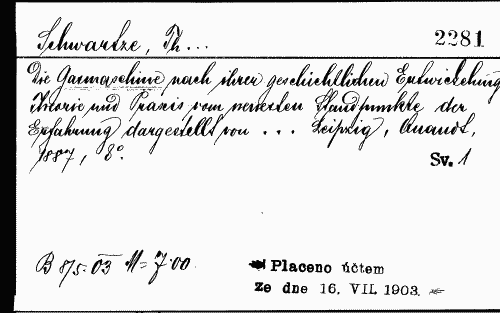 Schwartze, Th...
2281
Die Gasmaschine nach ihrer geschichtlichen Entwickelung
Theorie und Praxis vom neuesten Standpunkte der
Erfahrung dargestellt von ... Leipzig, Quandt,
1887, 8°.
Sv. 1
B 8/5. 03 M= 7.00.
Placeno účtem
Ze dne 16. VII. 1903.